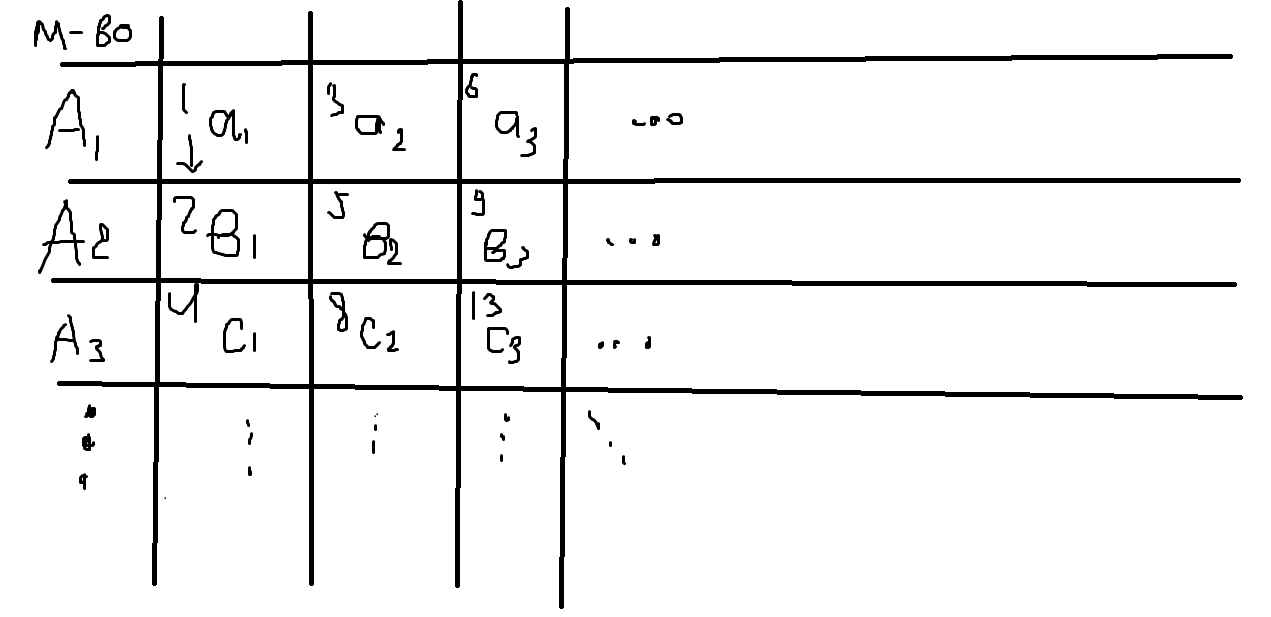 М-во
A₁ 1 a₁ 3 a₂ 6 a₃ ...
A₂ 2 B₁ 5 B₂ 9 B₃ ...
A₃ 4 C₁ 8 C₂ 13 C₃ ...